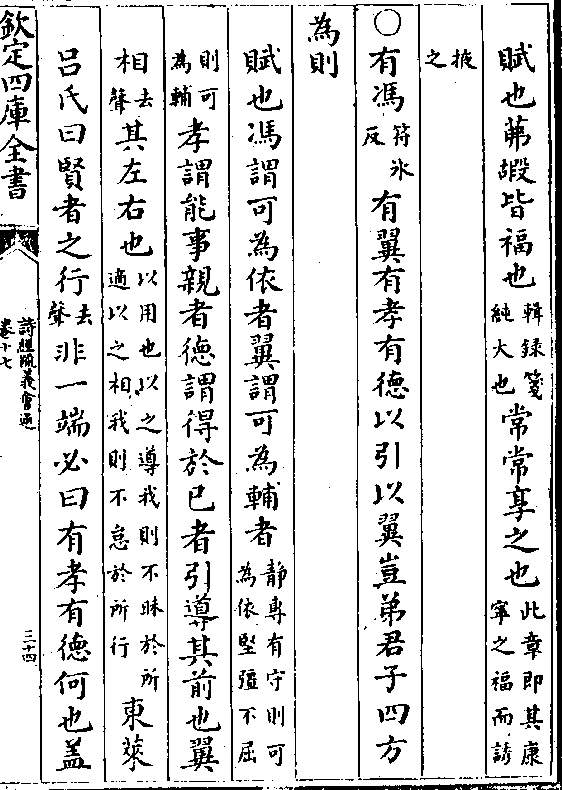 賦也茀嘏皆福也輯録箋純大也常常享之也此章即其康寧之福而誘
掖之
○有馮符氷反有翼有孝有德以引以翼豈弟君子四方
為則
賦也馮謂可為依者翼謂可為輔者靜專有守則可為依堅彊不屈
則可為輔孝謂能事親者德謂得於已者引導其前也翼
相去聲其左右也以用也以之導我則不昧於所適以之相我則不怠於所行東萊
呂氏曰賢者之行去聲非一端必曰有孝有德何也盖
欽定四庫全書
詩經疏義會通
卷十七
三十四